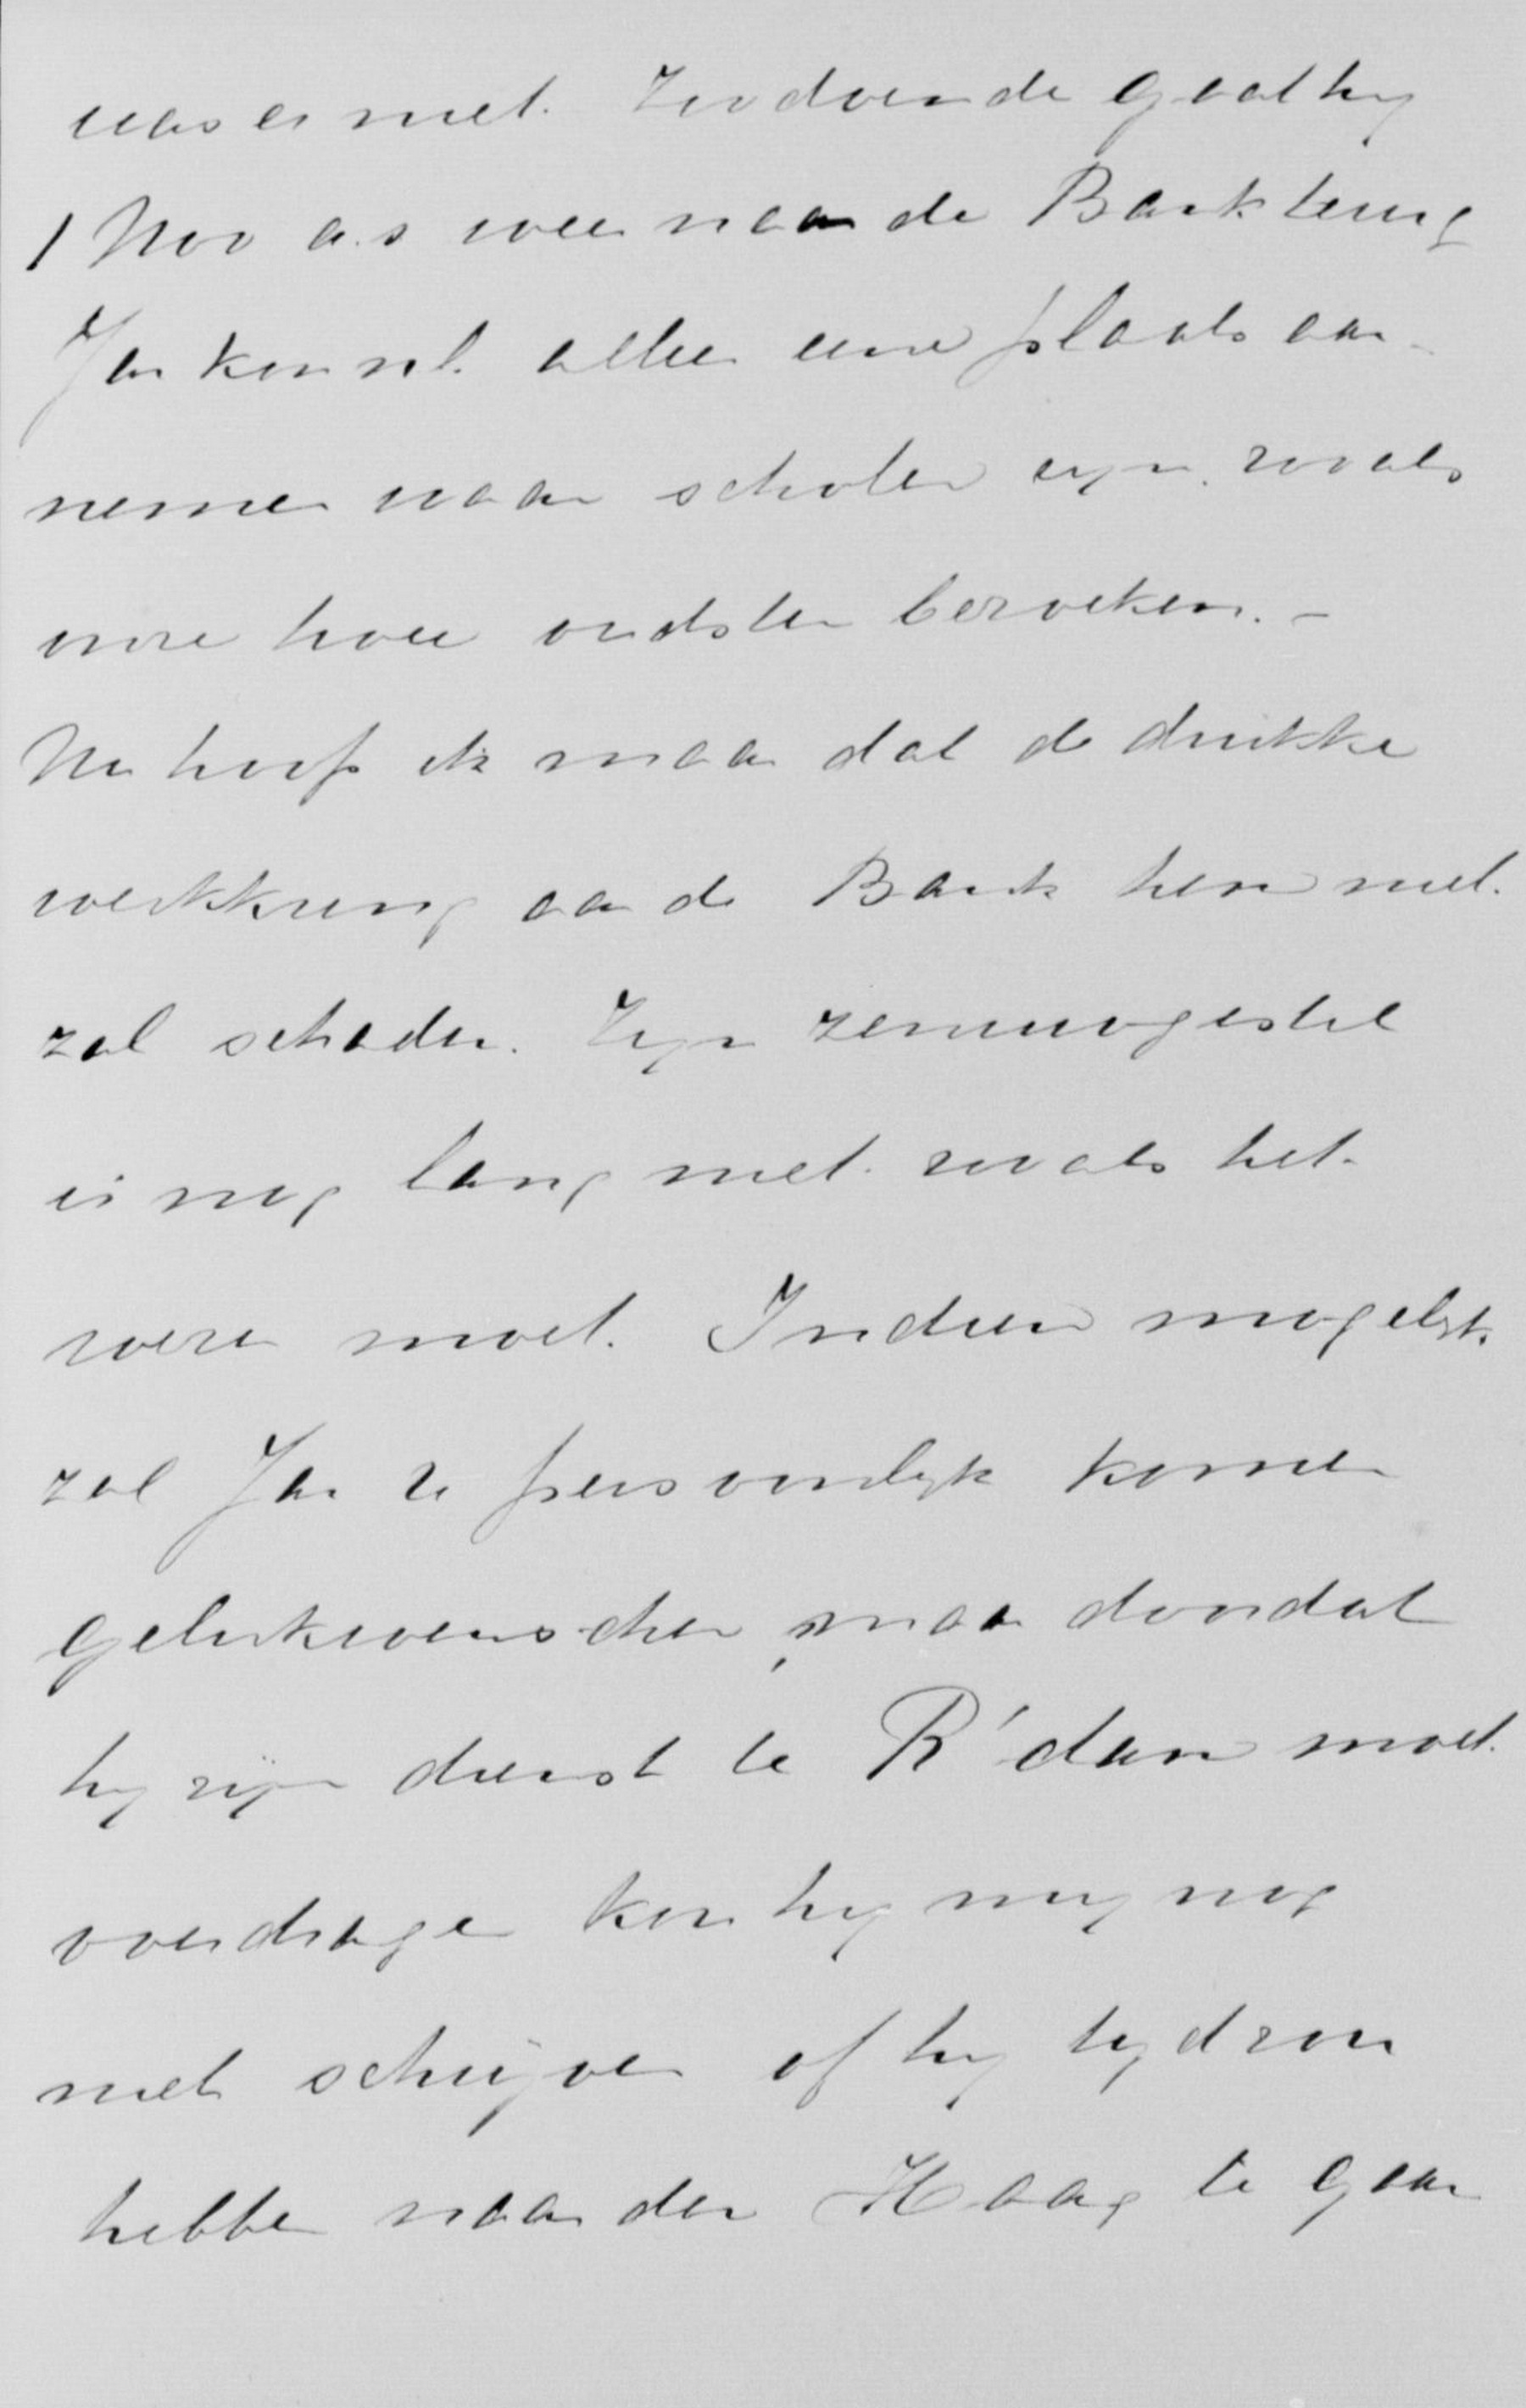 was er niet. Zoodoende gaat hij
1 Nov a.s weer naar de Bank terug
Jan kon nl. alleen eene plaats aan-
nemen waar scholen zijn, zooals
onze twee oudsten bezoeken. -
Nu hoop ik maar dat de drukke
werkkring aan de Bank hem niet
zal schaden. Zijn zenuwgestel
is nog lang niet zooals het
wezen moet. Indien mogelijk
zal Jan U persoonlijk komen
gelukwenschen, maar doordat
hij zijn dienst te R'dam moet
overdragen kon hij mij nog
niet schrijven of hij tijd zou
hebben naar den Haag te gaan